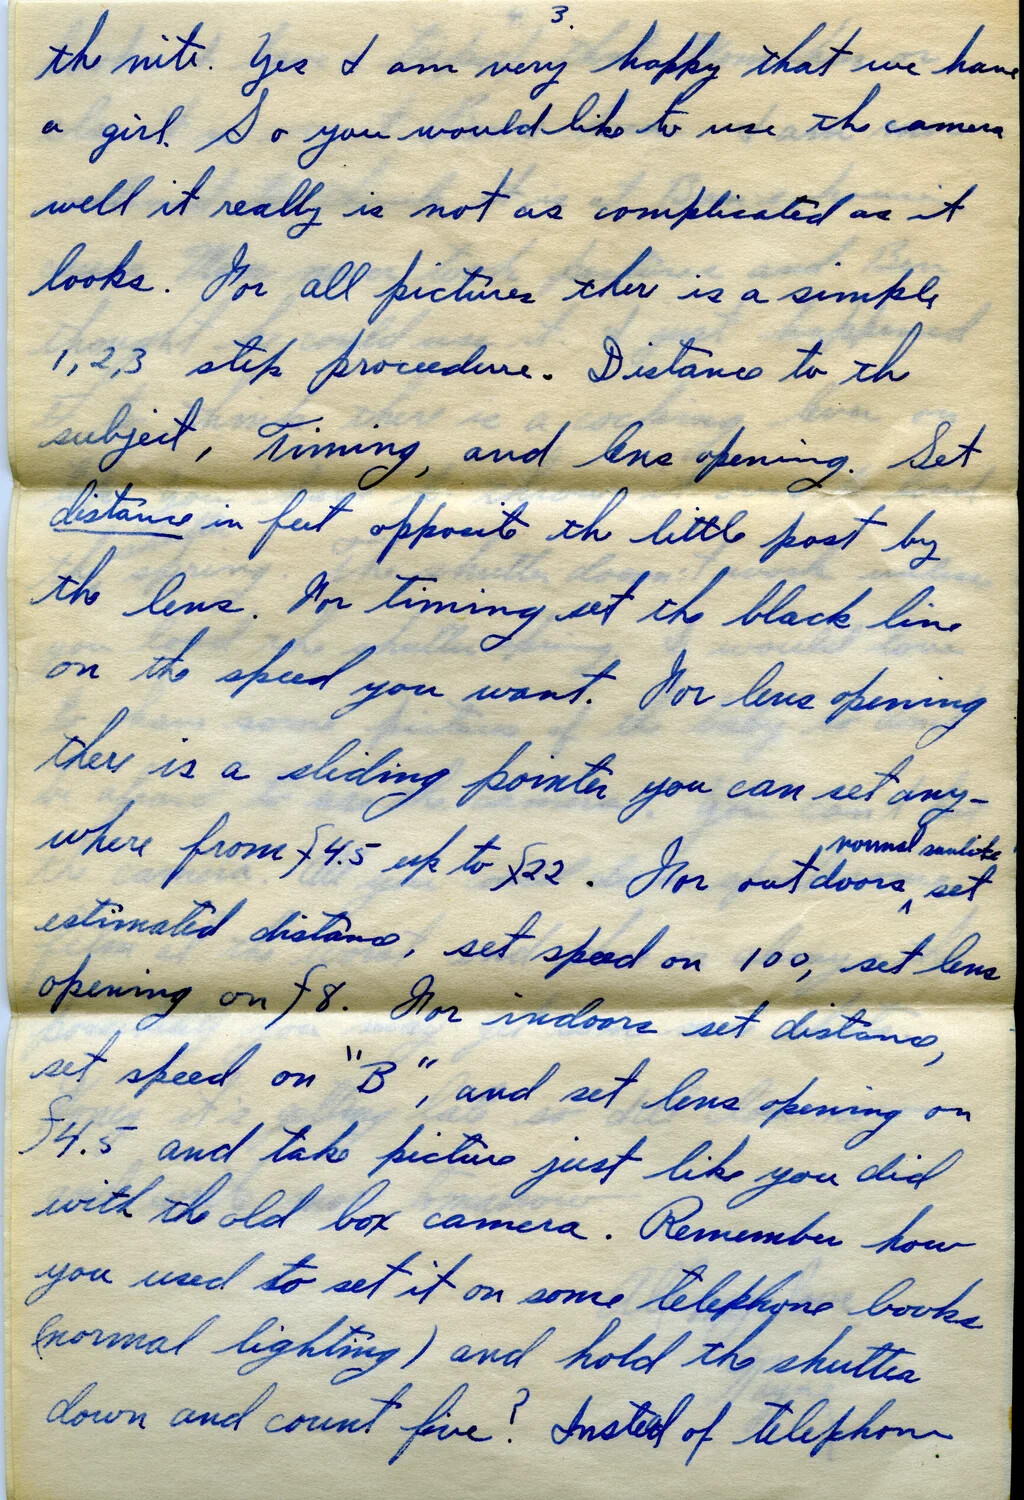 3.
the nite. Yes I am very happy that we have
a girl. So you would like to use the camera
well it really is not as complicated as it
looks. For all pictures there is a simple
1, 2, 3 step proceedure. Distance to the
subject, Timing, and lens opening. Set
distance in feet opposite the little post by
the lens. For timing set the black line
on the speed you want. For lens opening
there is a sliding pointer you can set any-
where from f4.5 up to f22. For outdoors, normal sunlite set
estimated distance, set speed on 100, set lens
opening on f8. For indoors set distance,
set speed on "B", and set lens opening on
f4.5 and take picture just like you did
with the old box camera. Remember how
you used to set it on some telephone books
(normal lighting) and hold the shutter
down and count five? Insted of telephone